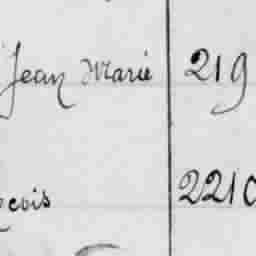 Jean Marie 219
çois 2210